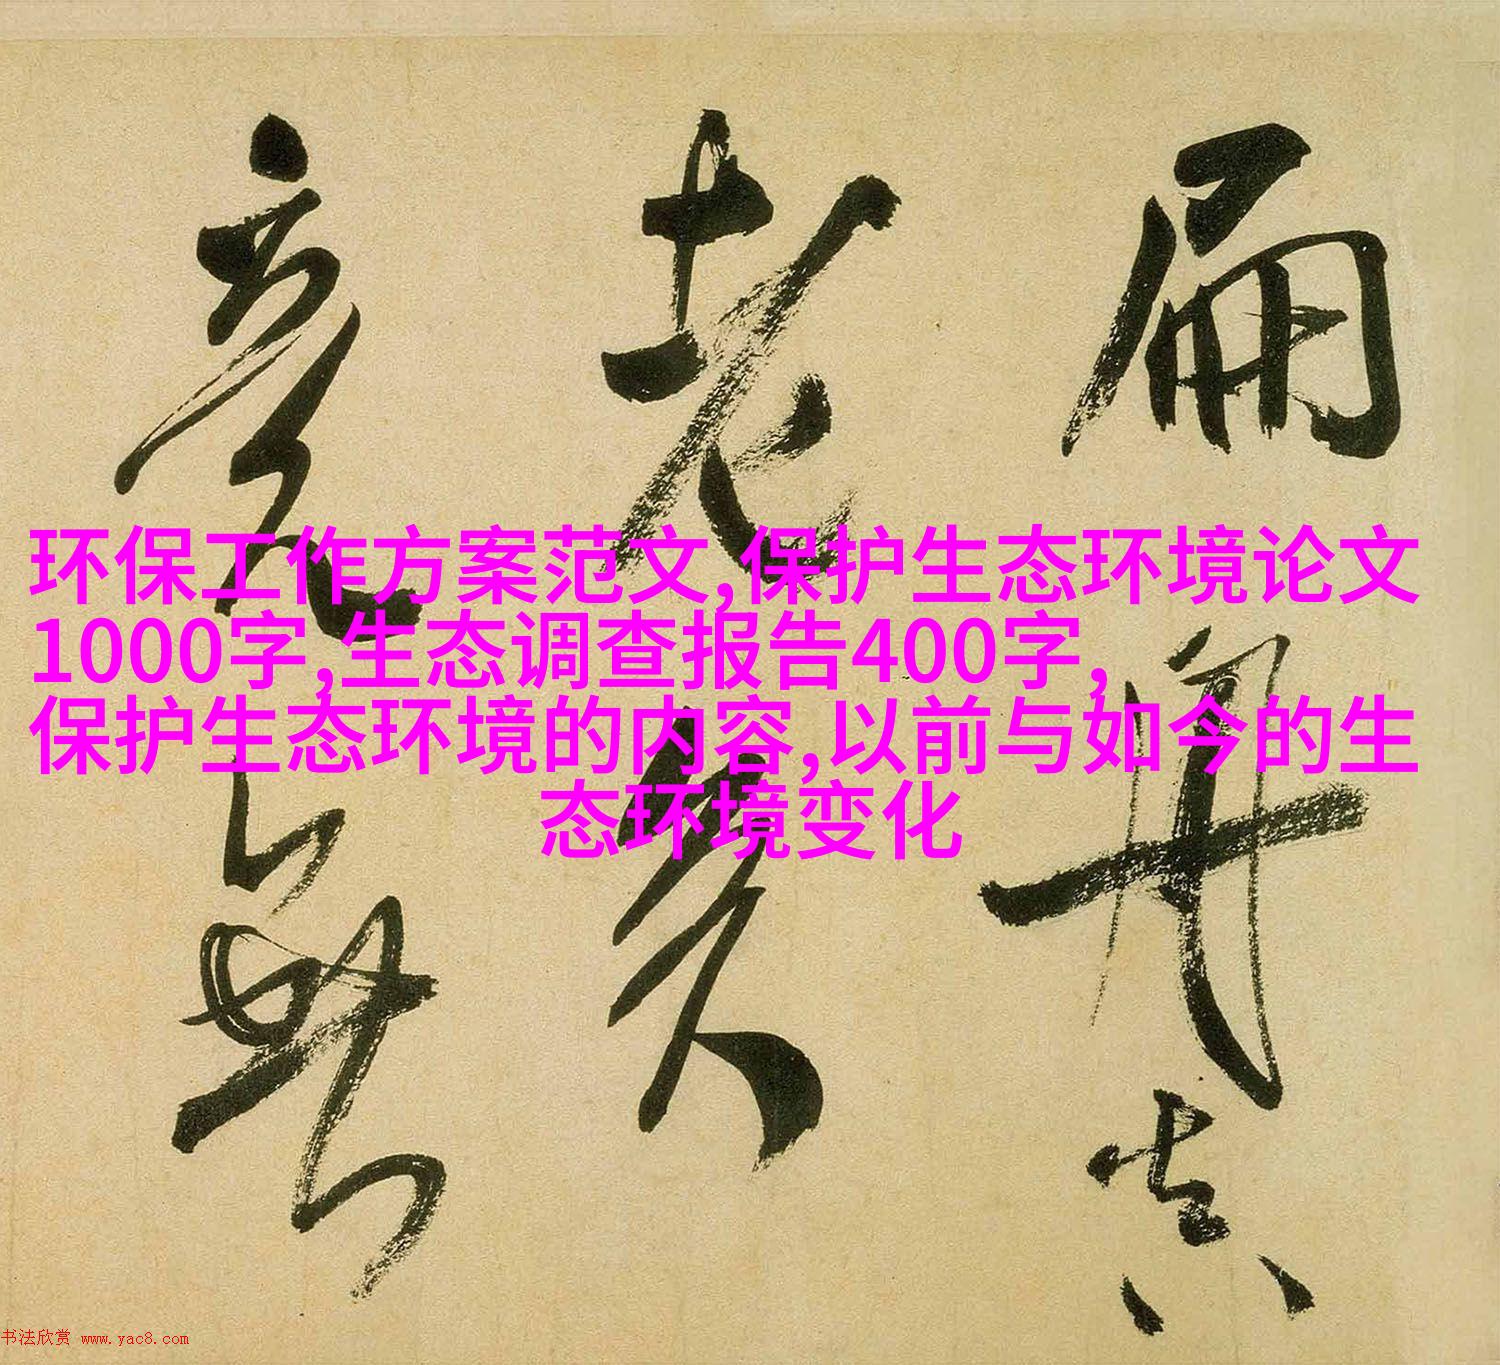 扁舟真
老矣
竟無
环保工作方案范文,保护生态环境论文
1000字,生态调查报告400字,
保护生态环境的内容,以前与如今的生
态环境变化
书法欣赏 www.yac8.com